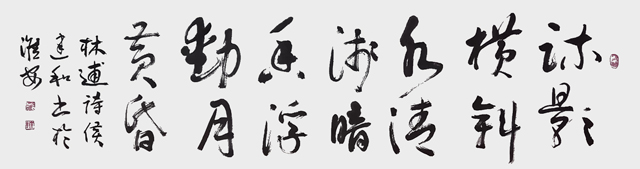 疏影
横斜
水清
浅暗
香浮
動月
黄昏
林逋诗侯
建和书于
淮安